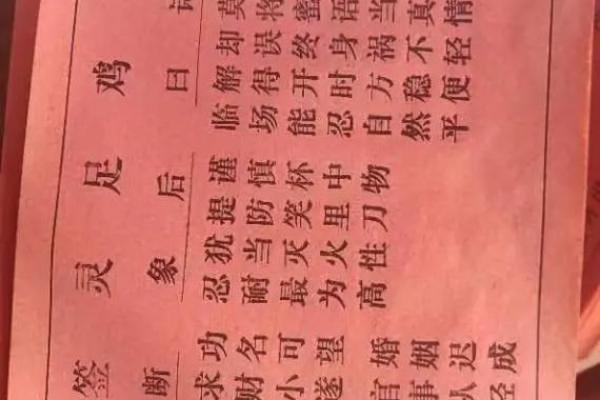 鸡足灵签
诗曰
莫将蜜语当真情
却误终身祸不轻
解得开时方稳便
临场能忍自然平
后象
谨慎杯中物
提防笑里刀
犹当灭火性
忍耐最为高
断
功名可望 婚姻迟成
求财小遂 官事